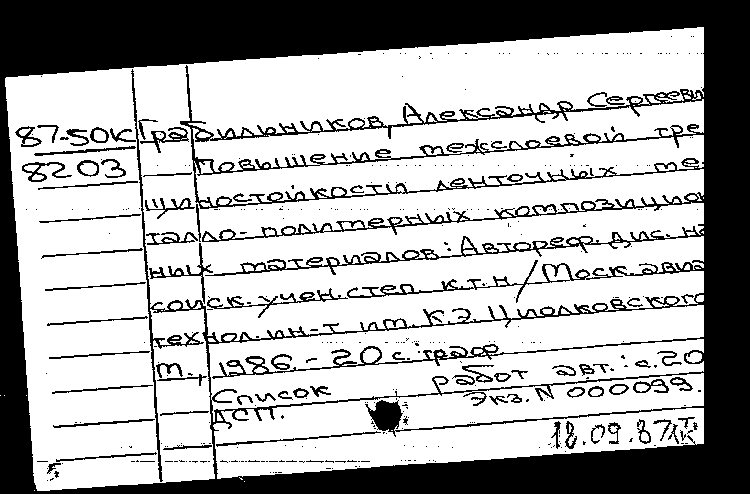 87-50К Грабильников, Александр Сергеевич
8203 Повышение межслоевой тре-
щиностойкости ленточных ме-
талло-полимерных композицион-
ных материалов: Автореф. дис. на
соиск. учен. степ. к.т.н. / Моск. авиа
технол. ин-т им. К.Э. Циолковского
М., 1986. - 20 с.: граф.
Список работ авт.: с. 20
ДСП. Экз. N 000099.
18.09.87
5